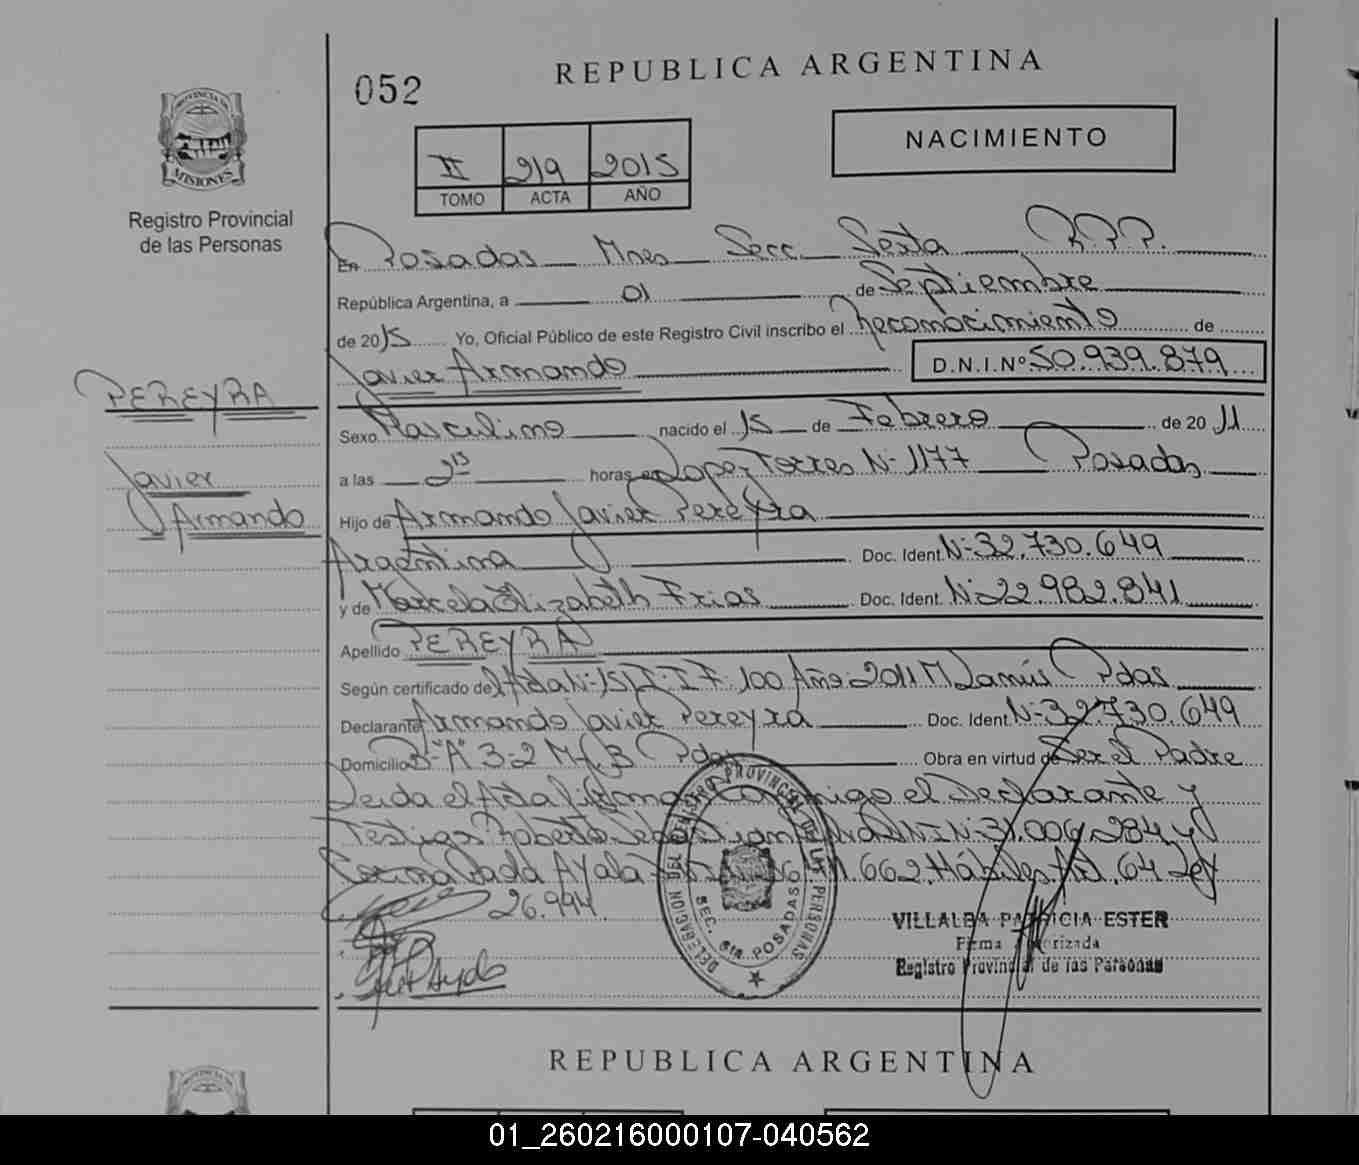 052
REPUBLICA ARGENTINA
NACIMIENTO
II 219 2015
TOMO ACTA AÑO
PROVINCIA DE
MISIONES
Registro Provincial
de las Personas
En Posadas Mnes Secc. Sexta R.P.P.
República Argentina, a 01 de Septiembre
de 2015 Yo, Oficial Público de este Registro Civil inscribo el Reconocimiento de
Javier Armando D.N.I.Nº 50.939.879
PEREYRA
Javier
Armando
Sexo Masculino nacido el 15 de Febrero de 2011
a las 2 15 horas en Lopez Torres Nº 1177 Posadas
Hijo de Armando Javier Pereyra
Argentina Doc. Ident. Nº 32.730.649
y de Marcela Elizabeth Frias Doc. Ident. Nº 22.982.841
Apellido PEREYRA
Según certificado del Acta Nº 151 Año 2011 Pdas
Declarante Armando Javier Pereyra Doc. Ident. Nº 32.730.649
Domicilio Bº "A" 3-2 Pdas Obra en virtud de Ser el Padre
Leida el Acta firman Conmigo el Declarante y
Testigos Roberto DNI Nº 31.006.284 y
Ayala 662. Hábiles Art. 64 Ley
26.994
DELEGACION DEL REGISTRO PROVINCIAL DE LAS PERSONAS
SEC. 6ta POSADAS
VILLALBA PATRICIA ESTER
Firma Autorizada
Registro Provincial de las Personas
REPUBLICA ARGENTINA
01_260216000107-040562